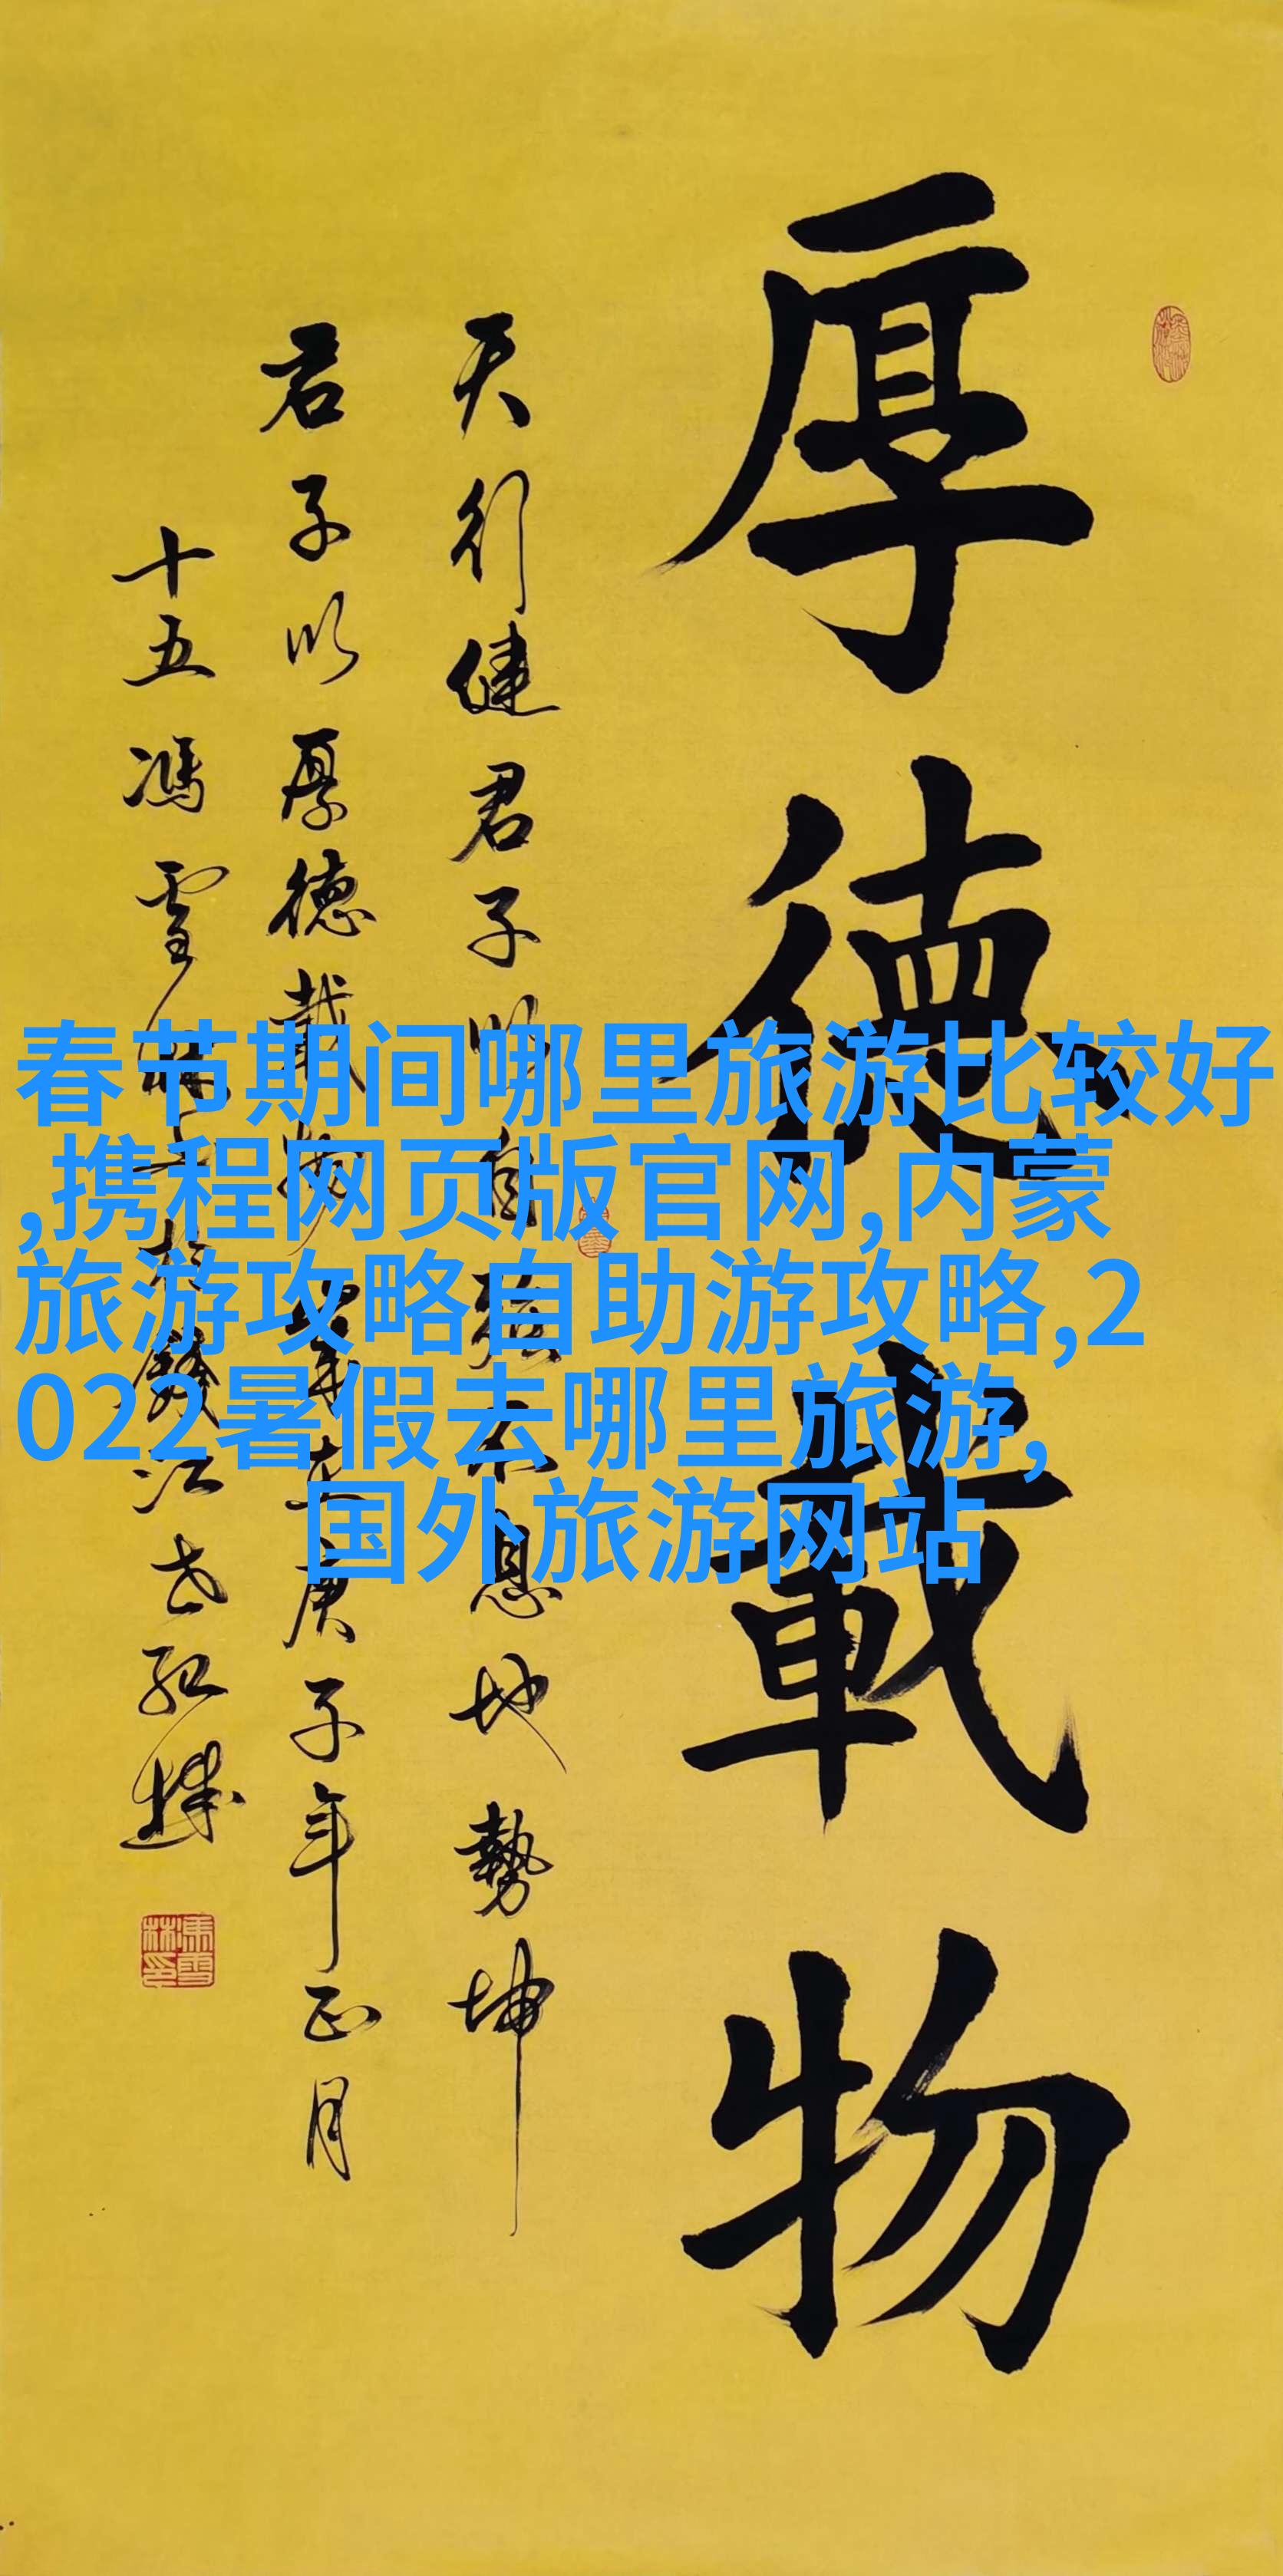 厚德載物
天行健君子以自强不息地勢坤
君子以厚德載物歲在庚子年正月
十五馮雪林
春节期间哪里旅游比较好
,携程网页版官网,内蒙
旅游攻略自助游攻略,2
022暑假去哪里旅游,
国外旅游网站
馮雪林印